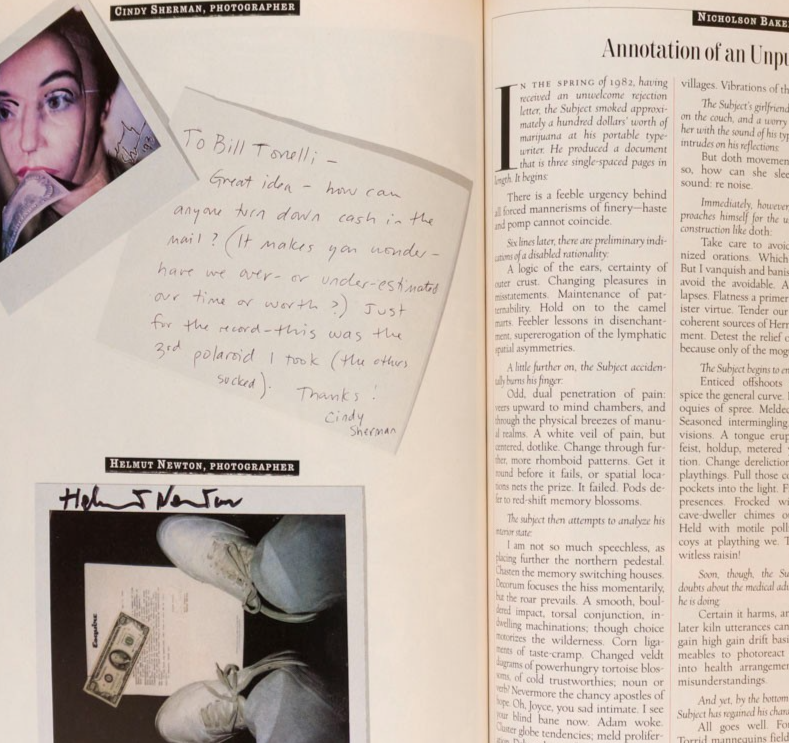 CINDY SHERMAN, PHOTOGRAPHER
To Bill Tonelli –
Great idea – how can
anyone turn down cash in the
mail? (It makes you wonder –
have we over- or under-estimated
our time or worth?) Just
for the record – this was the
3rd polaroid I took (the others
sucked). Thanks!
Cindy
Sherman
HELMUT NEWTON, PHOTOGRAPHER
Helmut Newton
Esquire
NICHOLSON BAKE
Annotation of an Unpu
IN THE SPRING of 1982, having
received an unwelcome rejection
letter, the Subject smoked approxi-
mately a hundred dollars' worth of
marijuana at his portable type-
writer. He produced a document
that is three single-spaced pages in
length. It begins:
There is a feeble urgency behind
all forced mannerisms of finery—haste
and pomp cannot coincide.
Six lines later, there are preliminary indi-
cations of a disabled rationality:
A logic of the ears, certainty of
outer crust. Changing pleasures in
misstatements. Maintenance of pat-
ternability. Hold on to the camel
marts. Feebler lessons in disenchant-
ment, supererogation of the lymphatic
spatial asymmetries.
A little further on, the Subject acciden-
tally burns his finger:
Odd, dual penetration of pain:
veers upward to mind chambers, and
through the physical breezes of manu-
al realms. A white veil of pain, but
centered, dotlike. Change through fur-
ther, more rhomboid patterns. Get it
round before it fails, or spatial loca-
tions nets the prize. It failed. Pods de-
fer to red-shift memory blossoms.
The subject then attempts to analyze his
interior state:
I am not so much speechless, as
placing further the northern pedestal.
Chasten the memory switching houses.
Decorum focuses the hiss momentarily,
but the roar prevails. A smooth, boul-
dered impact, torsal conjunction, in-
dwelling machinations; though choice
motorizes the wilderness. Corn liga-
ments of taste-cramp. Changed veldt
diagrams of powerhungry tortoise blos-
soms, of cold trustworthies; noun or
verb? Nevermore the chancy apostles of
hope. Oh, Joyce, you sad intimate. I see
your blind bane now. Adam woke.
Cluster globe tendencies; meld prolifer-
villages. Vibrations of th
The Subject's girlfriend
on the couch, and a worry
her with the sound of his typ
intrudes on his reflections:
But doth movemen
so, how can she slee
sound: re noise.
Immediately, however
proaches himself for the u
construction like doth:
Take care to avoid
nized orations. Which
But I vanquish and banis
avoid the avoidable. A
lapses. Flatness a primer
ister virtue. Tender our
coherent sources of Herr
ment. Detest the relief o
because only of the mog
The Subject begins to en
Enticed offshoots
spice the general curve.
oquies of spree. Melded
Seasoned intermingling
visions. A tongue erup
feist, holdup, metered
tion. Change dereliction
playthings. Pull those co
pockets into the light. F
presences. Frocked wi
cave-dweller chimes o
Held with motile poll
coys at plaything we. T
witless raisin!
Soon, though, the Su
doubts about the medical adv
he is doing:
Certain it harms, an
later kiln utterances can
gain high gain drift basi
meables to photoreact
into health arrangemen
misunderstandings.
And yet, by the bottom
Subject has regained his chara
All goes well. For
Torrid mannequins field